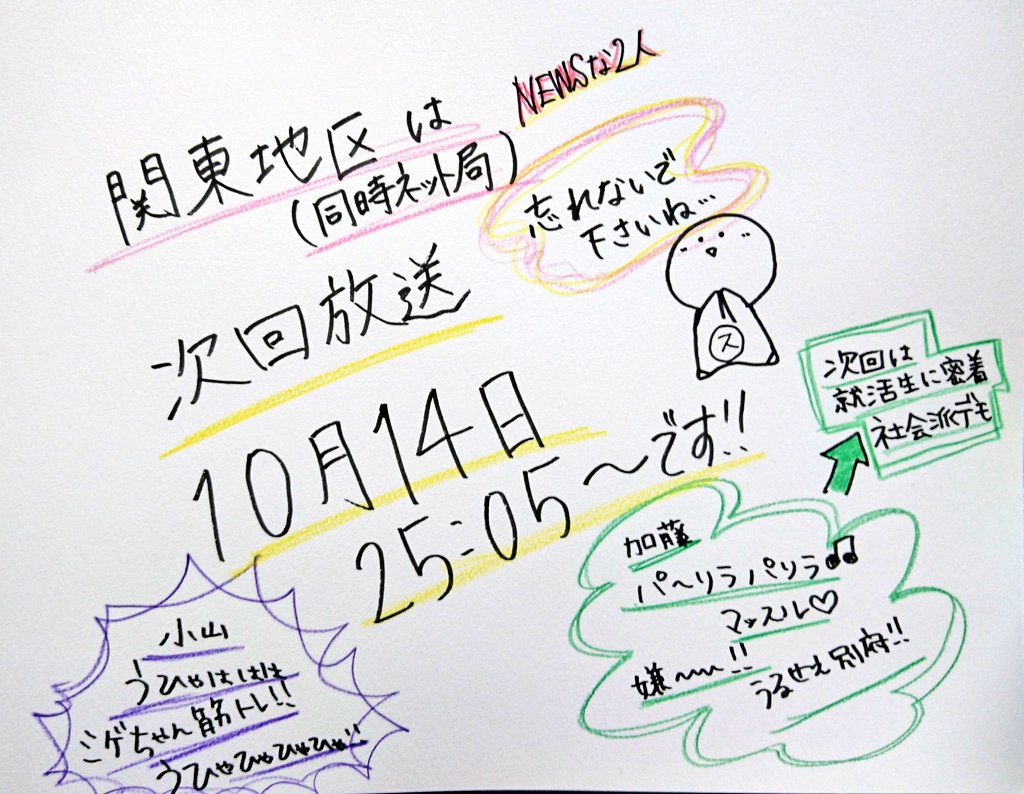 NEWSな2人
関東地区は
(同時ネット局)
忘れないで
下さいね…
次回放送
10月14日
25:05〜です!!
ス
次回は
就活生に密着
社会派デモ
加藤
パ〜リラパリラ♫
マッスル♡
嫌〜〜!!
うるせえ別府!!
小山
うひゃはははは
ミゲちゃん筋トレ!!
うひゃひゃひゃひゃ